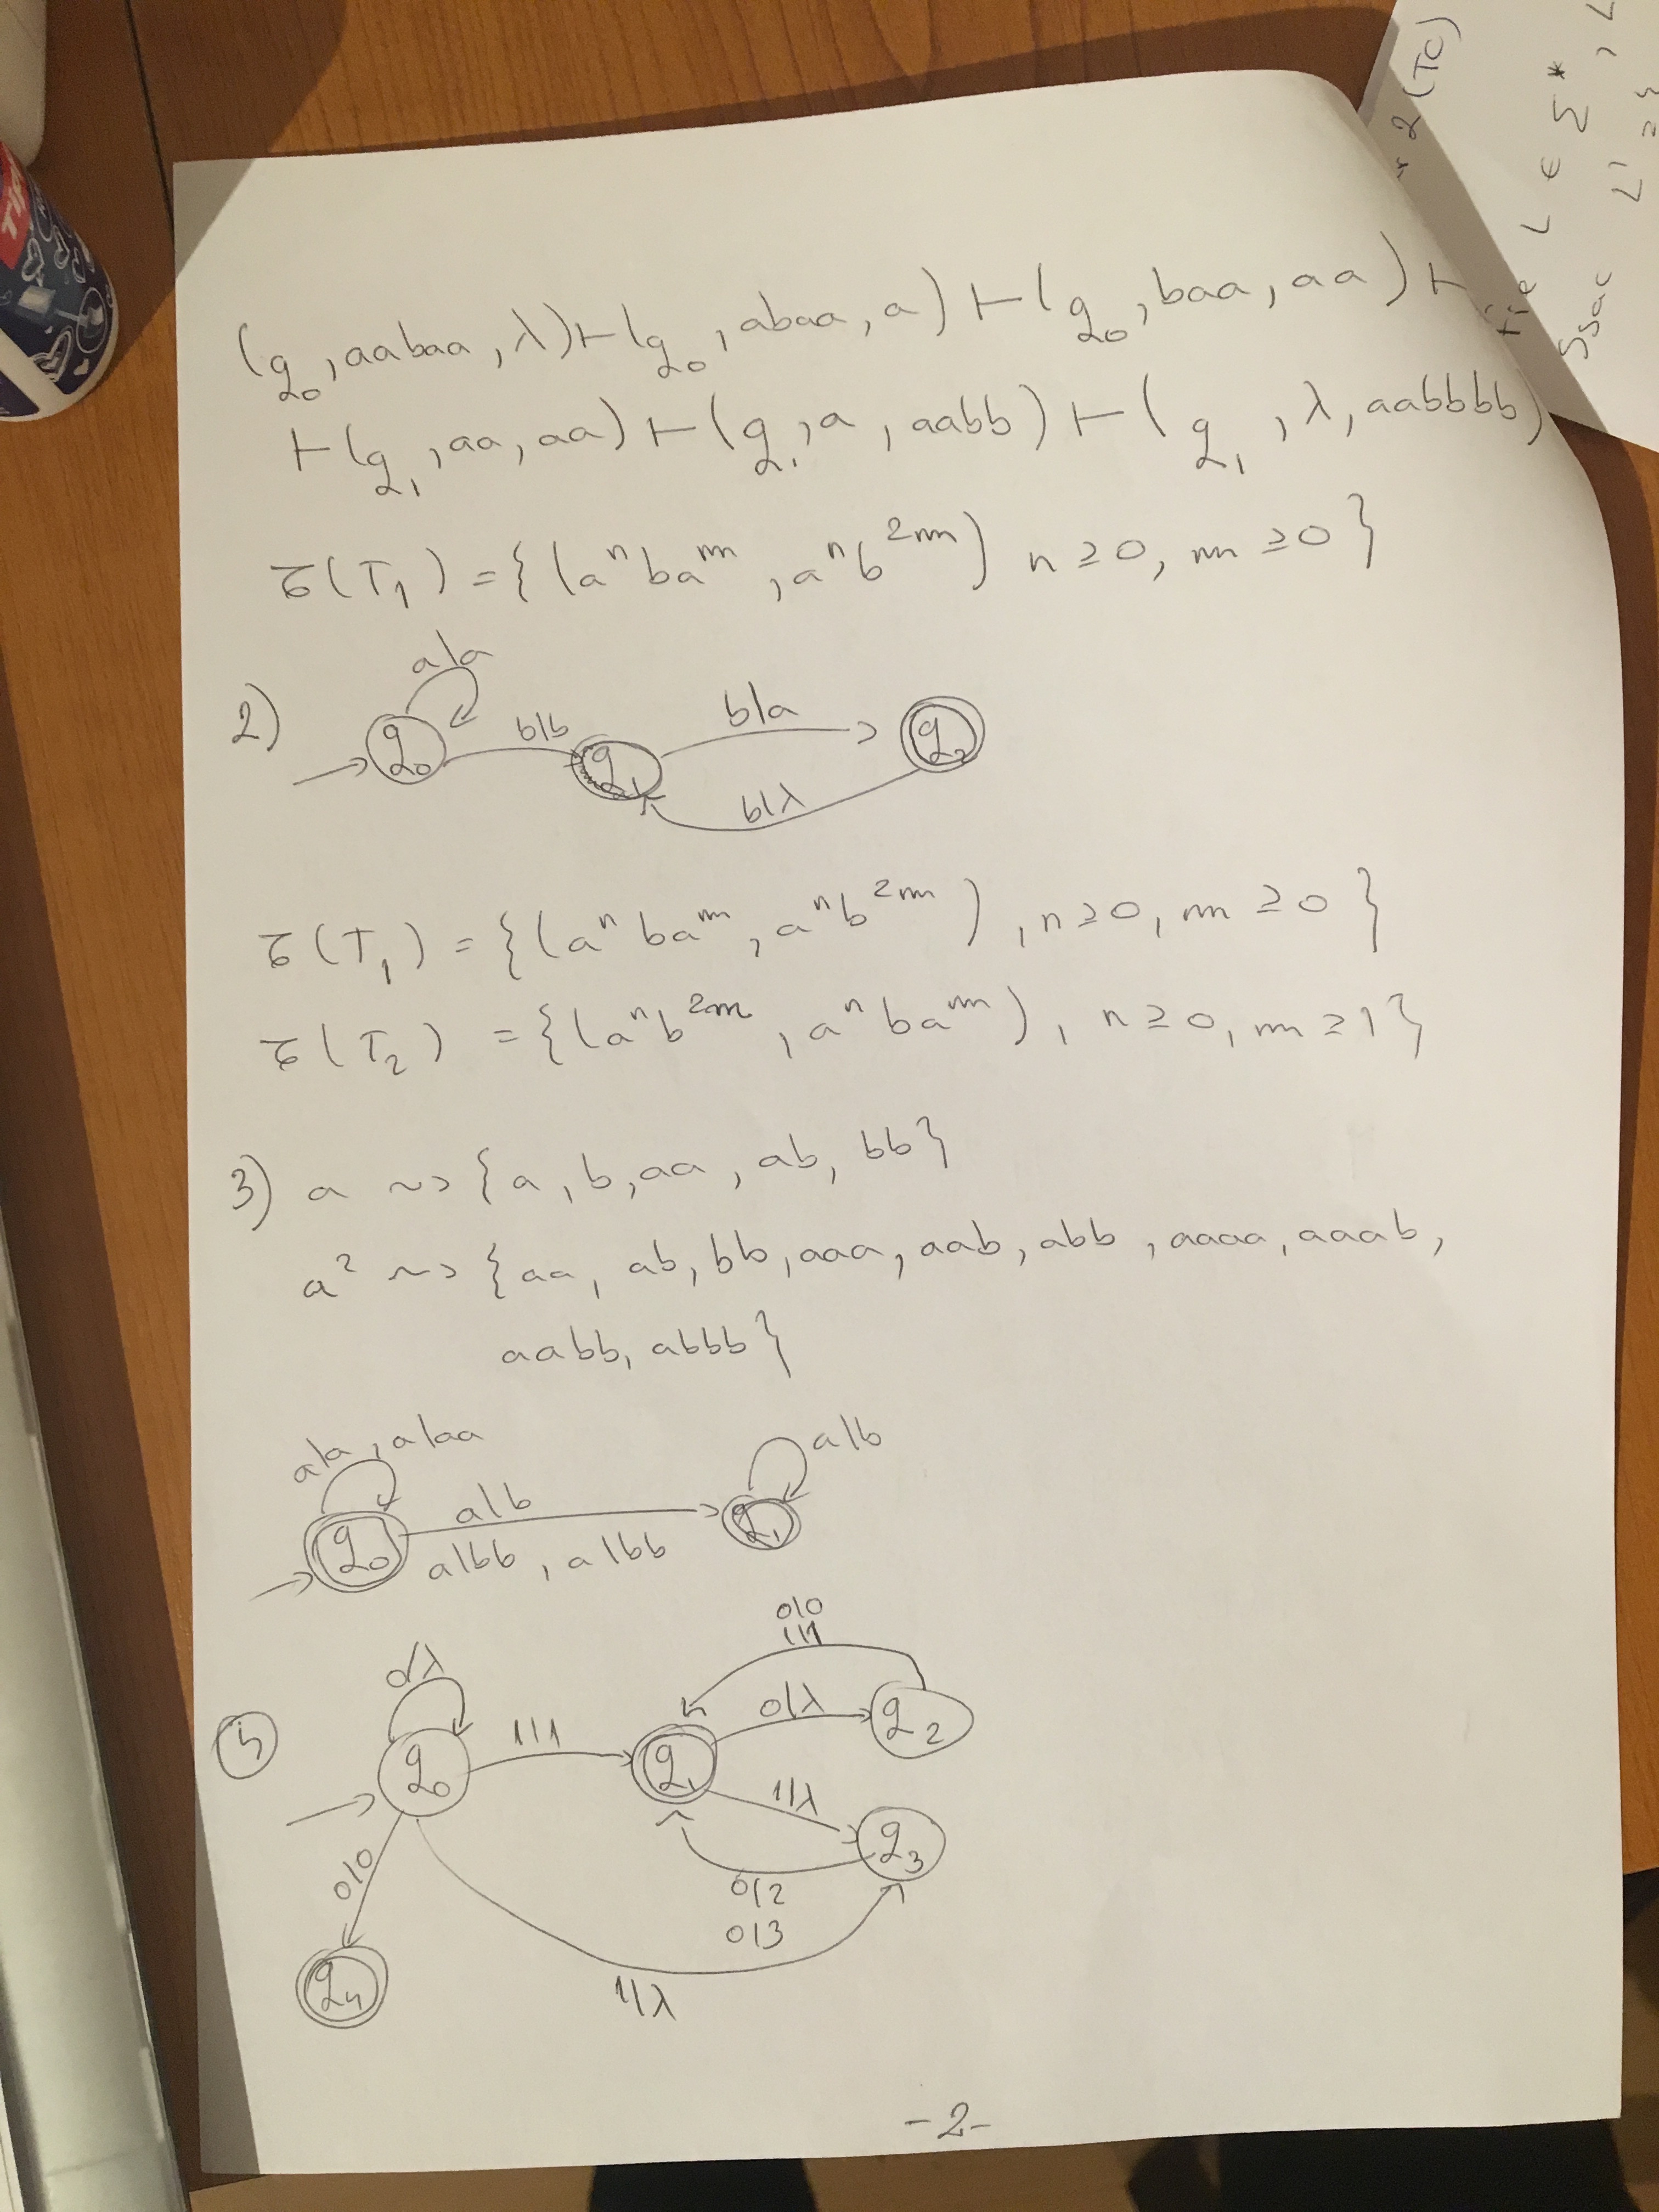 (q₀, aabaa, λ) ⊢ (q₀, abaa, a) ⊢ (q₀, baa, aa) ⊢
⊢ (q₁, aa, aa) ⊢ (q₁, a, aabb) ⊢ (q₁, λ, aabbbb)
τ(T₁) = {(aⁿbaᵐ, aⁿb²ᵐ) n ≥ 0, m ≥ 0}
2)
a|a
q₀
b|b
q₁
b|a
q₂
b|λ
τ(T₁) = {(aⁿbaᵐ, aⁿb²ᵐ), n ≥ 0, m ≥ 0}
τ(T₂) = {(aⁿb²ᵐ, aⁿbaᵐ), n ≥ 0, m ≥ 1}
3) a ~> {a, b, aa, ab, bb}
a² ~> {aa, ab, bb, aaa, aab, abb, aaaa, aaab,
aabb, abbb}
a|a, a|aa
q₀
a|b
a|bb, a|bb
q₁
a|b
5
0|λ
q₀
1|1
q₁
0|0
1|1
0|λ
q₂
1|λ
q₃
0|2
0|3
0|0
q₄
1|λ
-2-
2 (TC)
fie L ∈ Σ*
L' = {